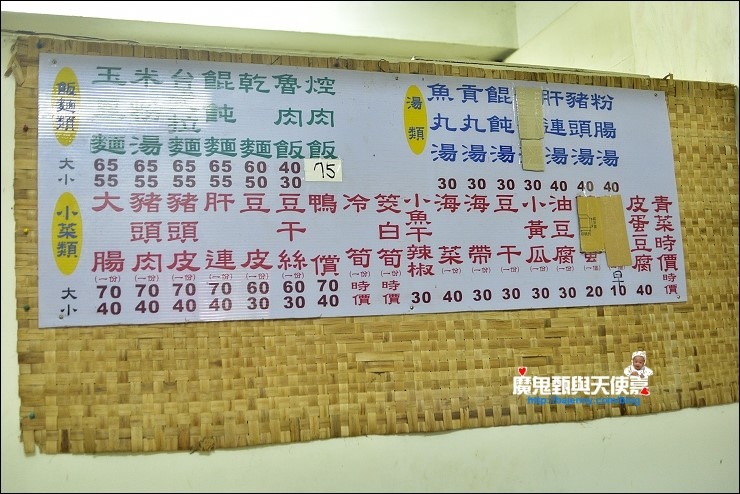 飯麵類
玉 麵
米粉湯
台 麵
餛飩麵
乾麵
魯肉飯
焢肉飯
大 65 65 65 65 60 40 75
小 55 55 55 55 50 30
湯類
魚丸湯
貢丸湯
餛飩湯
湯
肝連湯
豬頭湯
粉腸湯
30 30 30 30 40 40 40
小菜類
大腸(一份)
豬頭肉(一份)
豬頭皮(一份)
肝連(一份)
豆皮(一份)
豆干絲(一份)
鴨價(一份)
冷筍(一份)時價
筊白筍(一份)時價
小魚干辣椒
海菜
海帶
豆干
小黃瓜
油豆腐
皮蛋豆腐
青菜時價(一份)
大 70 70 70 70 60 60 70
小 40 40 40 40 30 30 40
30 40 30 30 30 30 20 10 40
魔鬼甄與天使嘉